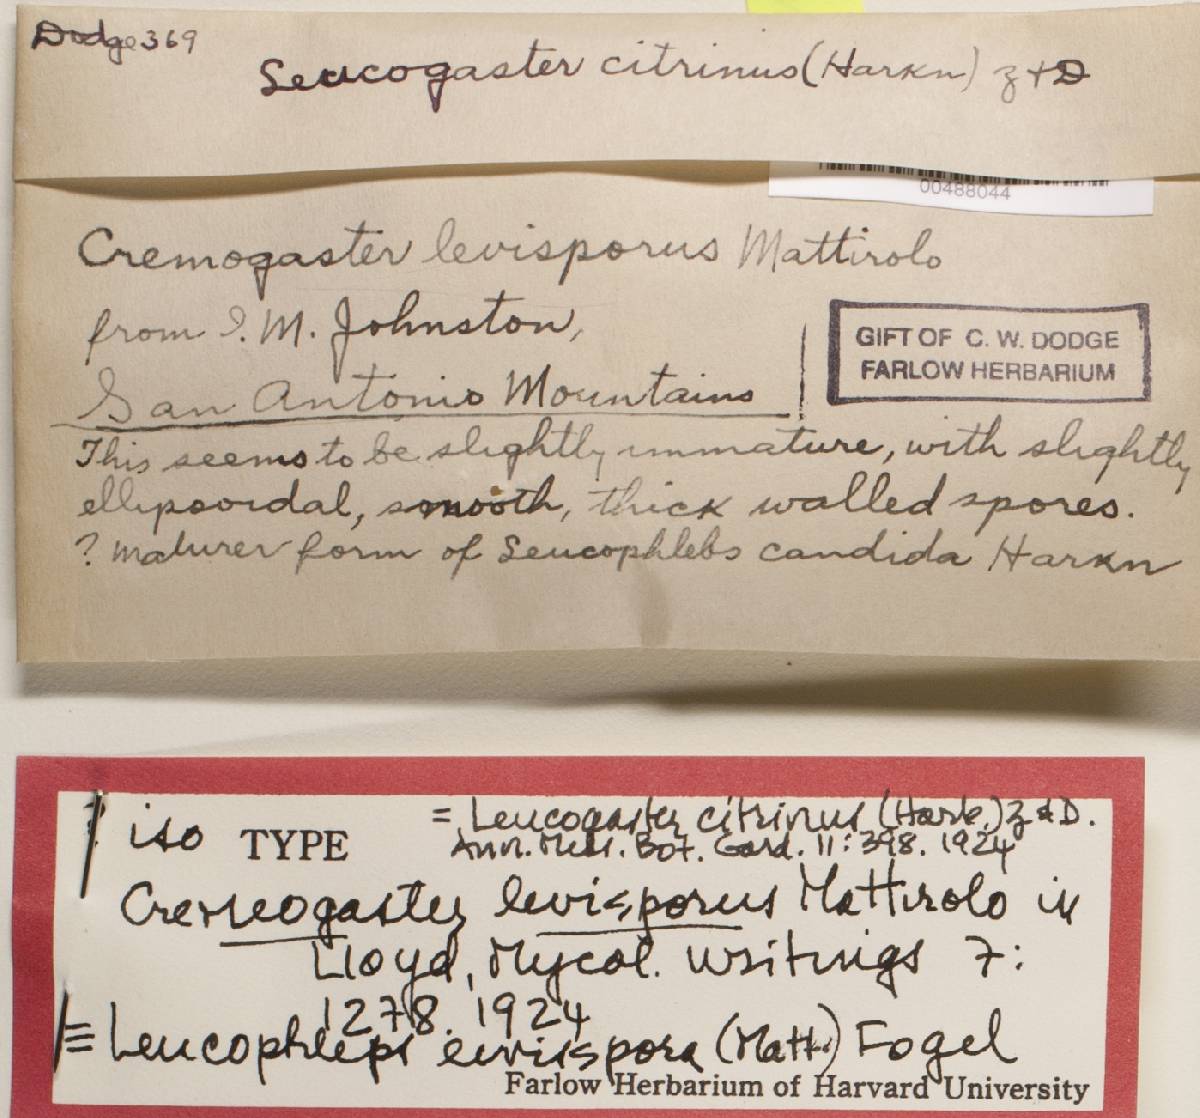 Dodge 369
Leucogaster citrinus (Harkn) Z + D
00488044
Cremogaster levisporus Mattirolo
from I. M. Johnston,
San Antonio Mountains
GIFT OF C. W. DODGE
FARLOW HERBARIUM
This seems to be slightly immature, with slightly
ellipsoidal, smooth, thick walled spores.
? maturer form of Leucophlebs candida Harkn
iso TYPE
= Leucogaster citrinus (Hark.) Z & D.
Ann. Miss. Bot. Gard. 11:398. 1924
Cremeogaster levisporus Mattirolo in
Lloyd, Mycol. Writings 7:
1278. 1924
≡ Leucophleps levispora (Matt.) Fogel
Farlow Herbarium of Harvard University